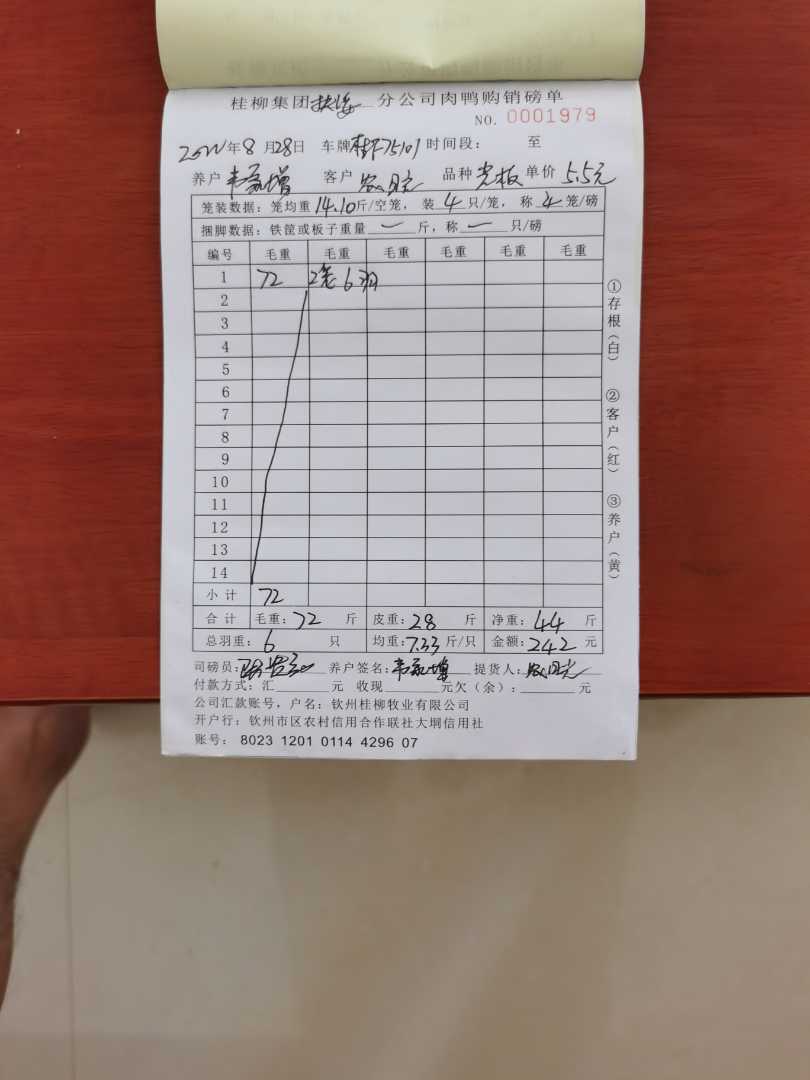 桂柳集团扶绥分公司肉鸭购销磅单
NO. 0001979
2022年8月28日 车牌桂F75101 时间段: 至
养户 韦 增 客户 品种 光板 单价 5.5元
笼装数据: 笼均重14.10斤/空笼, 装4只/笼, 称4笼/磅
捆脚数据: 铁筐或板子重量一斤, 称一只/磅
编号 毛重 毛重 毛重 毛重 毛重 毛重
1 72 2笼6羽
2
3
4
5
6
7
8
9
10
11
12
13
14
小计 72
合计 毛重: 72 斤 皮重: 28 斤 净重: 44 斤
总羽重: 6 只 均重: 7.33斤/只 金额: 242 元
司磅员: 养户签名: 韦 增 提货人:
付款方式: 汇 元 收现 元欠(余): 元
公司汇款账号, 户名: 钦州桂柳牧业有限公司
开户行: 钦州市区农村信用合作联社大垌信用社
账号: 8023 1201 0114 4296 07
①存根(白)
②客户(红)
③养户(黄)